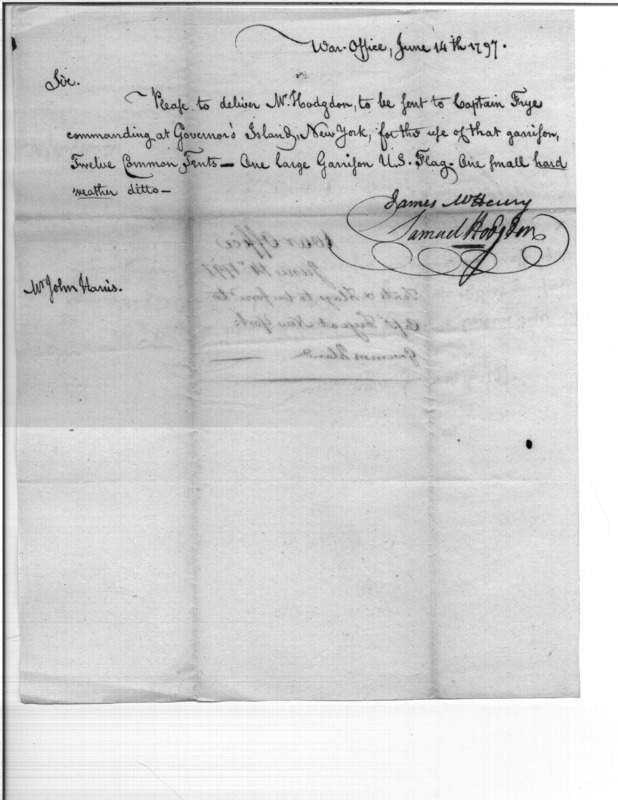 War-Office, June 14th 1797.
Sir.
Please to deliver Mr Hodgdon, to be sent to Captain Frye
commanding at Governor's Island, New York, for the use of that garrison,
Twelve Common Tents — One large Garrison U.S. Flag — One small hard
weather ditto —
James McHenry
Samuel Hodgdon
Mr John Harris.
War Office
June 14th 1797
Tents & Flags to be forwd to
Capt Frye at New York
Governors Island